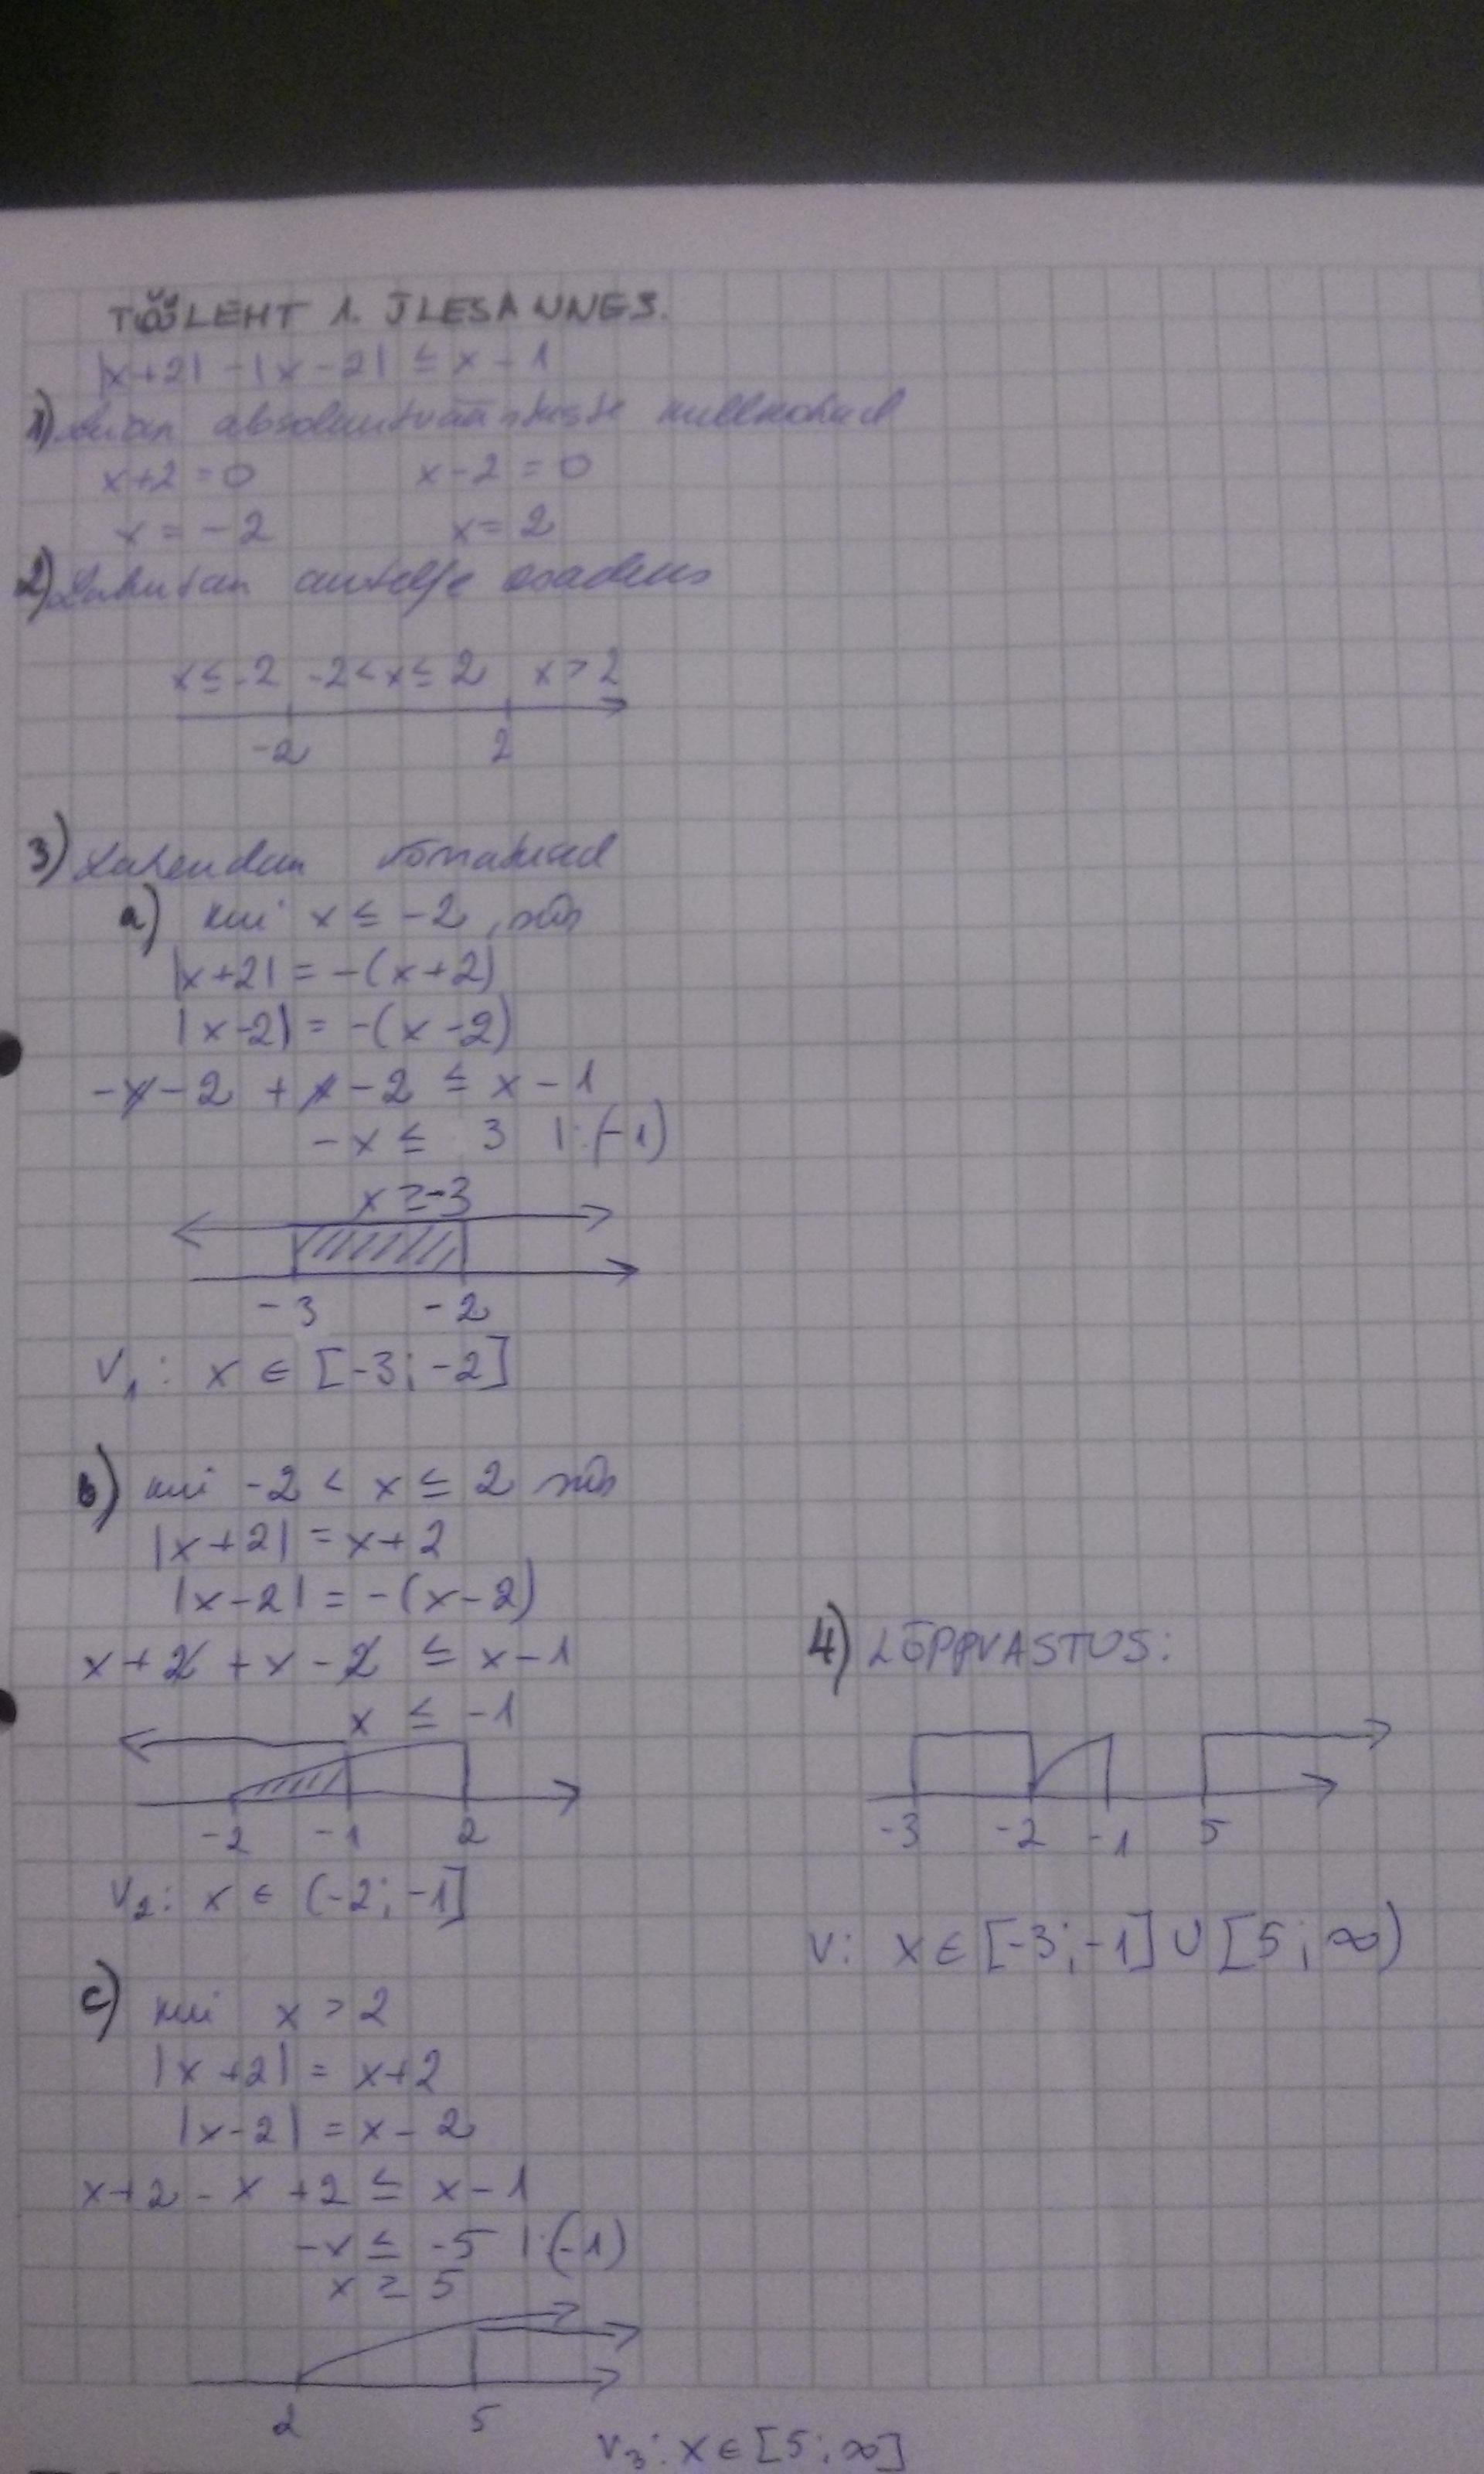 TÖÖLEHT 1. ÜLESANNE 3.
|x+2| - |x-2| ≤ x-1
1) Leian absoluutväärtuste nullkohad
x+2=0 x-2=0
x=-2 x=2
2) Lahutan arvtelje osadeks
x≤-2 -2<x≤2 x>2
-2 2
3) Lahendan võrratused
a) kui x ≤ -2, siis
|x+2| = -(x+2)
|x-2| = -(x-2)
-x-2 + x-2 ≤ x-1
-x ≤ 3 |:(-1)
x≥-3
-3 -2
V₁: x ∈ [-3; -2]
b) kui -2 < x ≤ 2 siis
|x+2| = x+2
|x-2| = -(x-2)
x+2 + x-2 ≤ x-1
x ≤ -1
-2 -1 2
V₂: x ∈ (-2; -1]
c) kui x > 2
|x+2| = x+2
|x-2| = x-2
x+2 - x +2 ≤ x-1
-x ≤ -5 |:(-1)
x ≥ 5
2 5
V₃: x ∈ [5; ∞]
4) LÕPPVASTUS:
-3 -2 -1 5
V: x ∈ [-3; -1] ∪ [5; ∞)